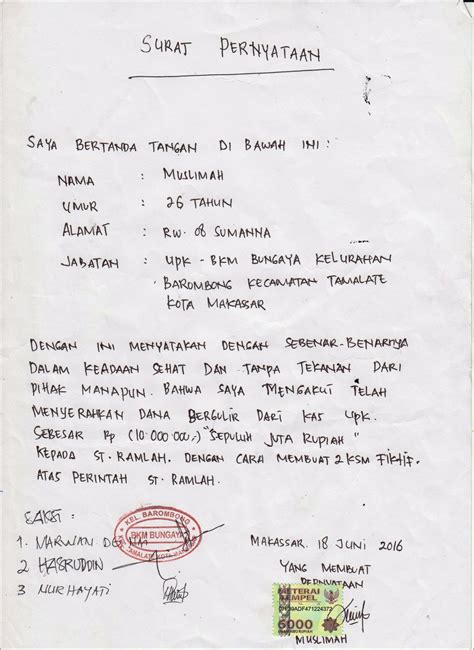 SURAT PERNYATAAN
SAYA BERTANDA TANGAN DI BAWAH INI :
NAMA : MUSLIMAH
UMUR : 26 TAHUN
ALAMAT : RW. 08 SUMANNA
JABATAN : UPK - BKM BUNGAYA KELURAHAN
BAROMBONG KECAMATAN TAMALATE
KOTA MAKASSAR
DENGAN INI MENYATAKAN DENGAN SEBENAR-BENARNYA
DALAM KEADAAN SEHAT DAN TANPA TEKANAN DARI
PIHAK MANAPUN. BAHWA SAYA MENGAKUI TELAH
MENYERAHKAN DANA BERGULIR DARI KAS UPK.
SEBESAR Rp (10.000.000,-) "SEPULUH JUTA RUPIAH"
KEPADA ST. RAMLAH. DENGAN CARA MEMBUAT 2 KSM FIKTIF.
ATAS PERINTAH ST. RAMLAH.
SAKSI :
1. MARWAN
2 HASRUDDIN
3 NURHAYATI
KEL BAROMBONG
BKM BUNGAYA
TAMALATE KOTA
MAKASSAR. 18 JUNI 2016
YANG MEMBUAT
PERNYATAAN
METERAI
TEMPEL
6000
MUSLIMAH